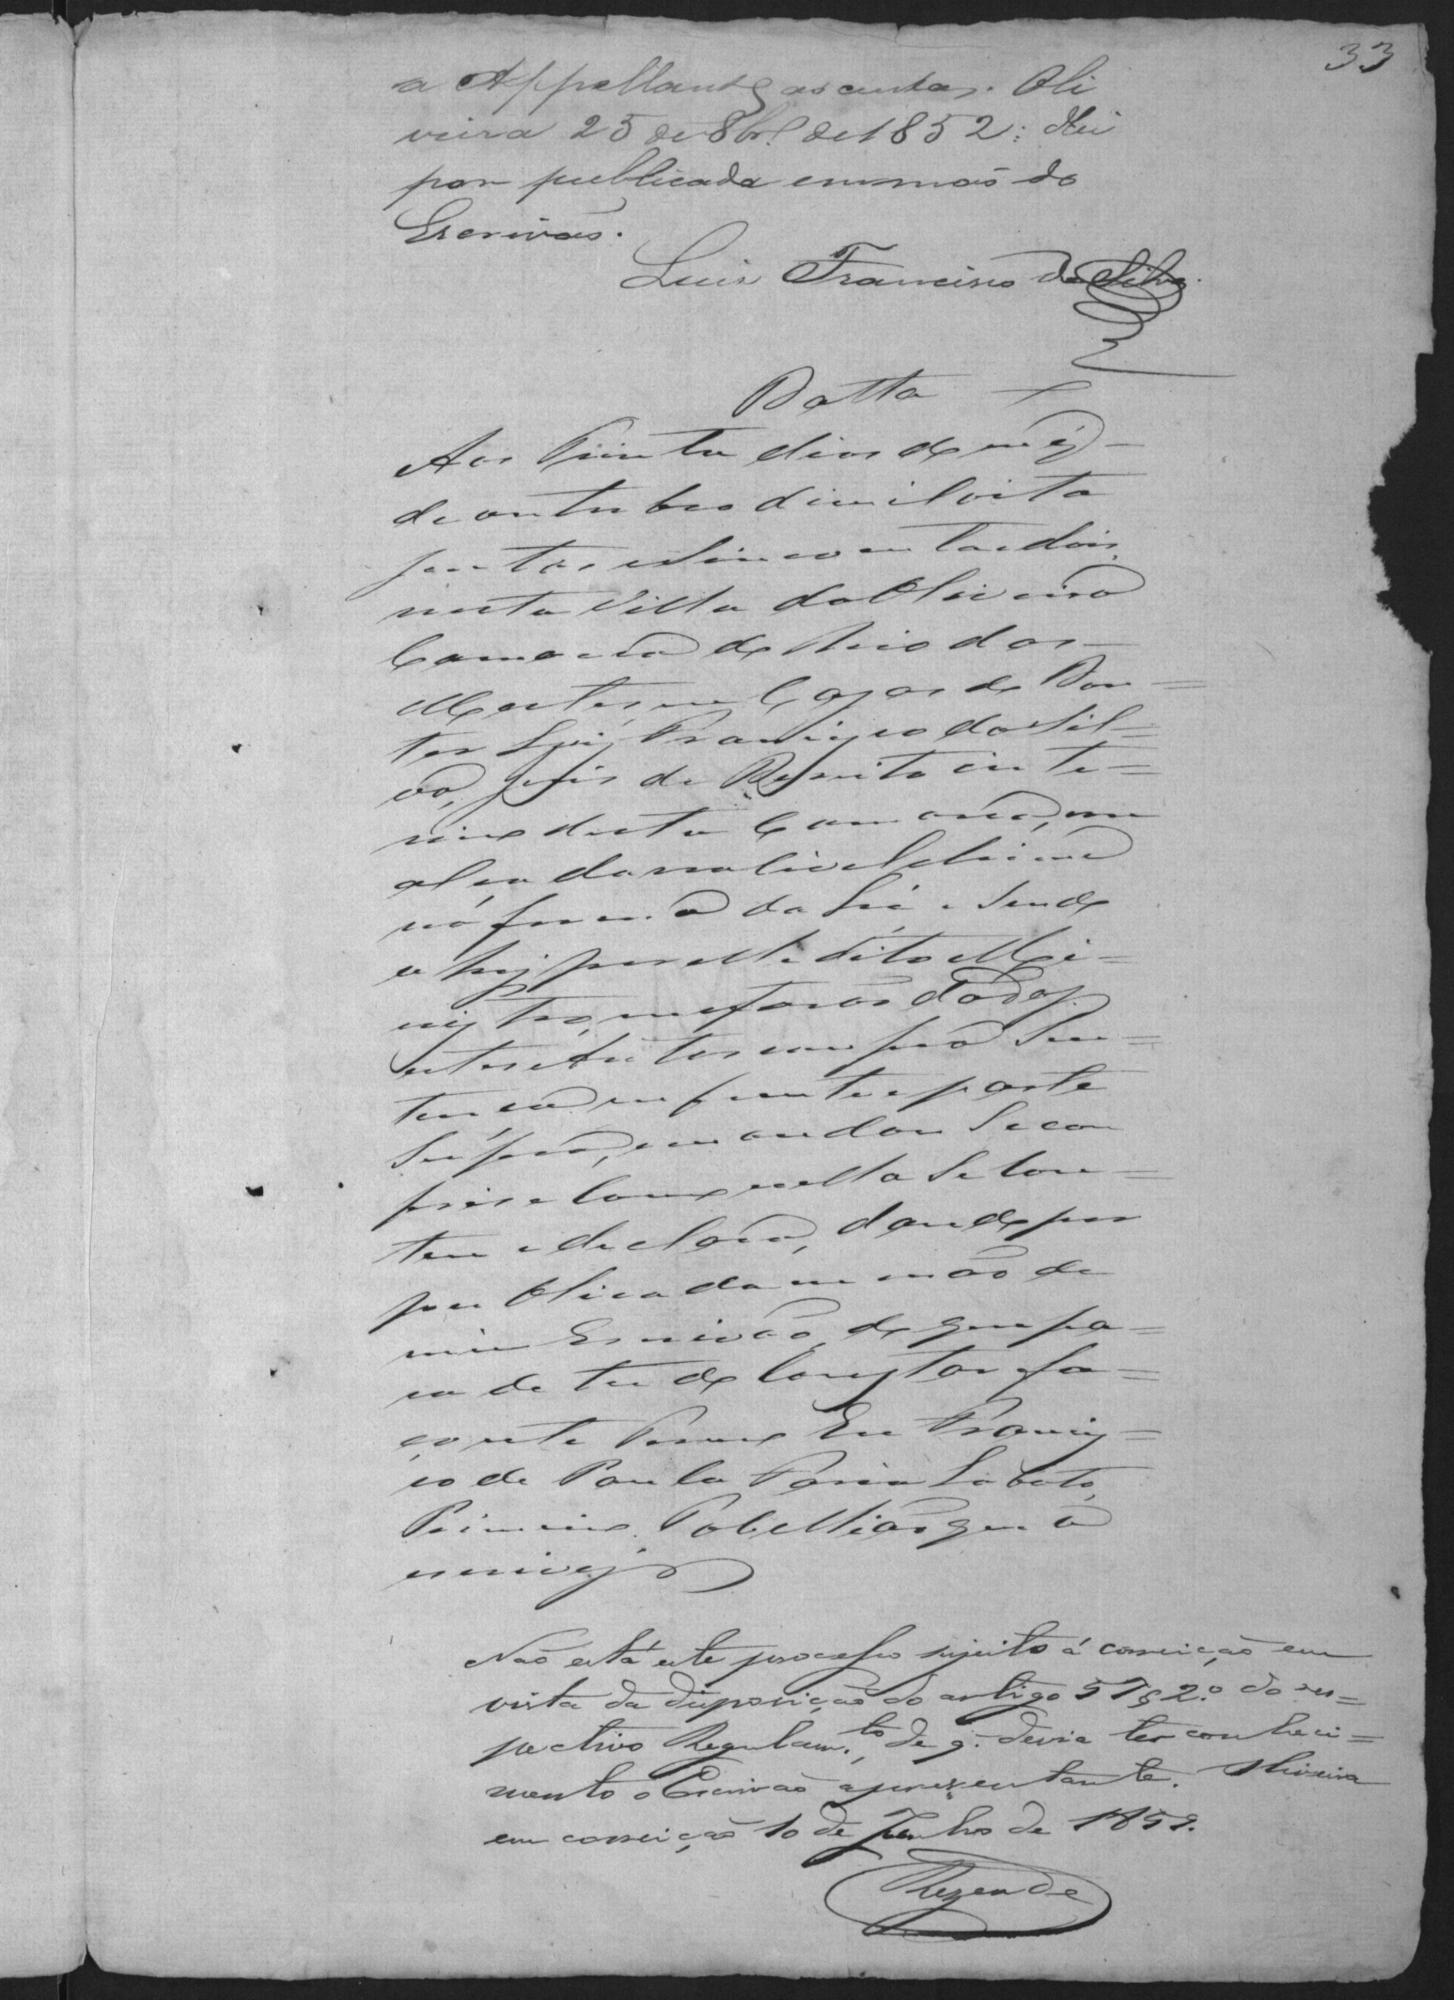 33
a Appellante as custas. Oli
veira 25 de 8br.º de 1852: Hei
por publicada em maõ do
Escrivaõ.
Luis Francisco da Silva
Datta
Aos trinta dias do mês
de outubro de mil oito
sentos e sincoenta e dois
nesta Villa da Oliveira
Comarca do Rio das
Mortes, em Cazas do Dou=
tor Luis Francisco da Sil=
va, Juis de Dereito inte=
rino desta Comarca, em
na forma da Lei e sendo
ahy por elle dito Me=
nistro, me foraõ dados
estes autos com sua Sen=
tença em frente e parte
Supra, e mandou Se com
prise como nella Se Con=
tem e declara, dando por
publicada em mão de
mim Escrivão, de que pa=
ra de tudo Constar fa=
ço este termo Eu Francis=
co de Paula Faria Lobato,
Primeiro Tabelliaõ que o
escrevy
Naõ está este processo sujeito á correiçaõ em
vista da disposiçaõ do artigo 51 § 2.º do res=
pectivo Regulam.to, de q. devia ter conheci=
mento o Escrivaõ apresentante. Oliveira
em correiçaõ 10 de Junho de 1859.
Rezende